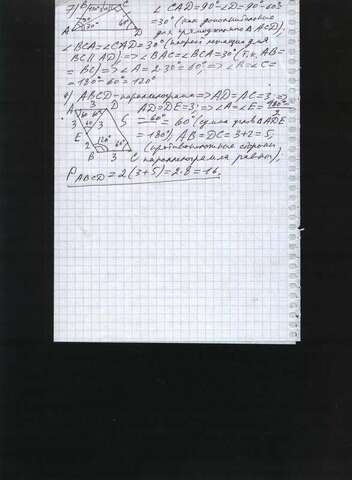 7) ∠CAD=90°-∠D=90°-60°=
=30° (как дополнительные
для прямоугольного ΔACD).
∠BCA=∠CAD=30° (накрест лежащие для
BC∥AD), => ∠BAC=∠BCA=30° (т.к. AB=
=BC) => ∠A=2·30°=60°, => ∠B=∠C=
=180°-60°=120°
ABCD - параллелограмм => AD=BC=3, =>
AD=DE=3, => ∠A=∠E=
=60° (сумма углов ΔADE
=180°). AB=DC=3+2=5,
(противоположные стороны
параллелограмма равны).
P ABCD = 2(3+5)=2·8=16.
A
B
C
D
60°
30°
A
3
D
3
3
E
60°
5
2
120°
60°
B
3
C